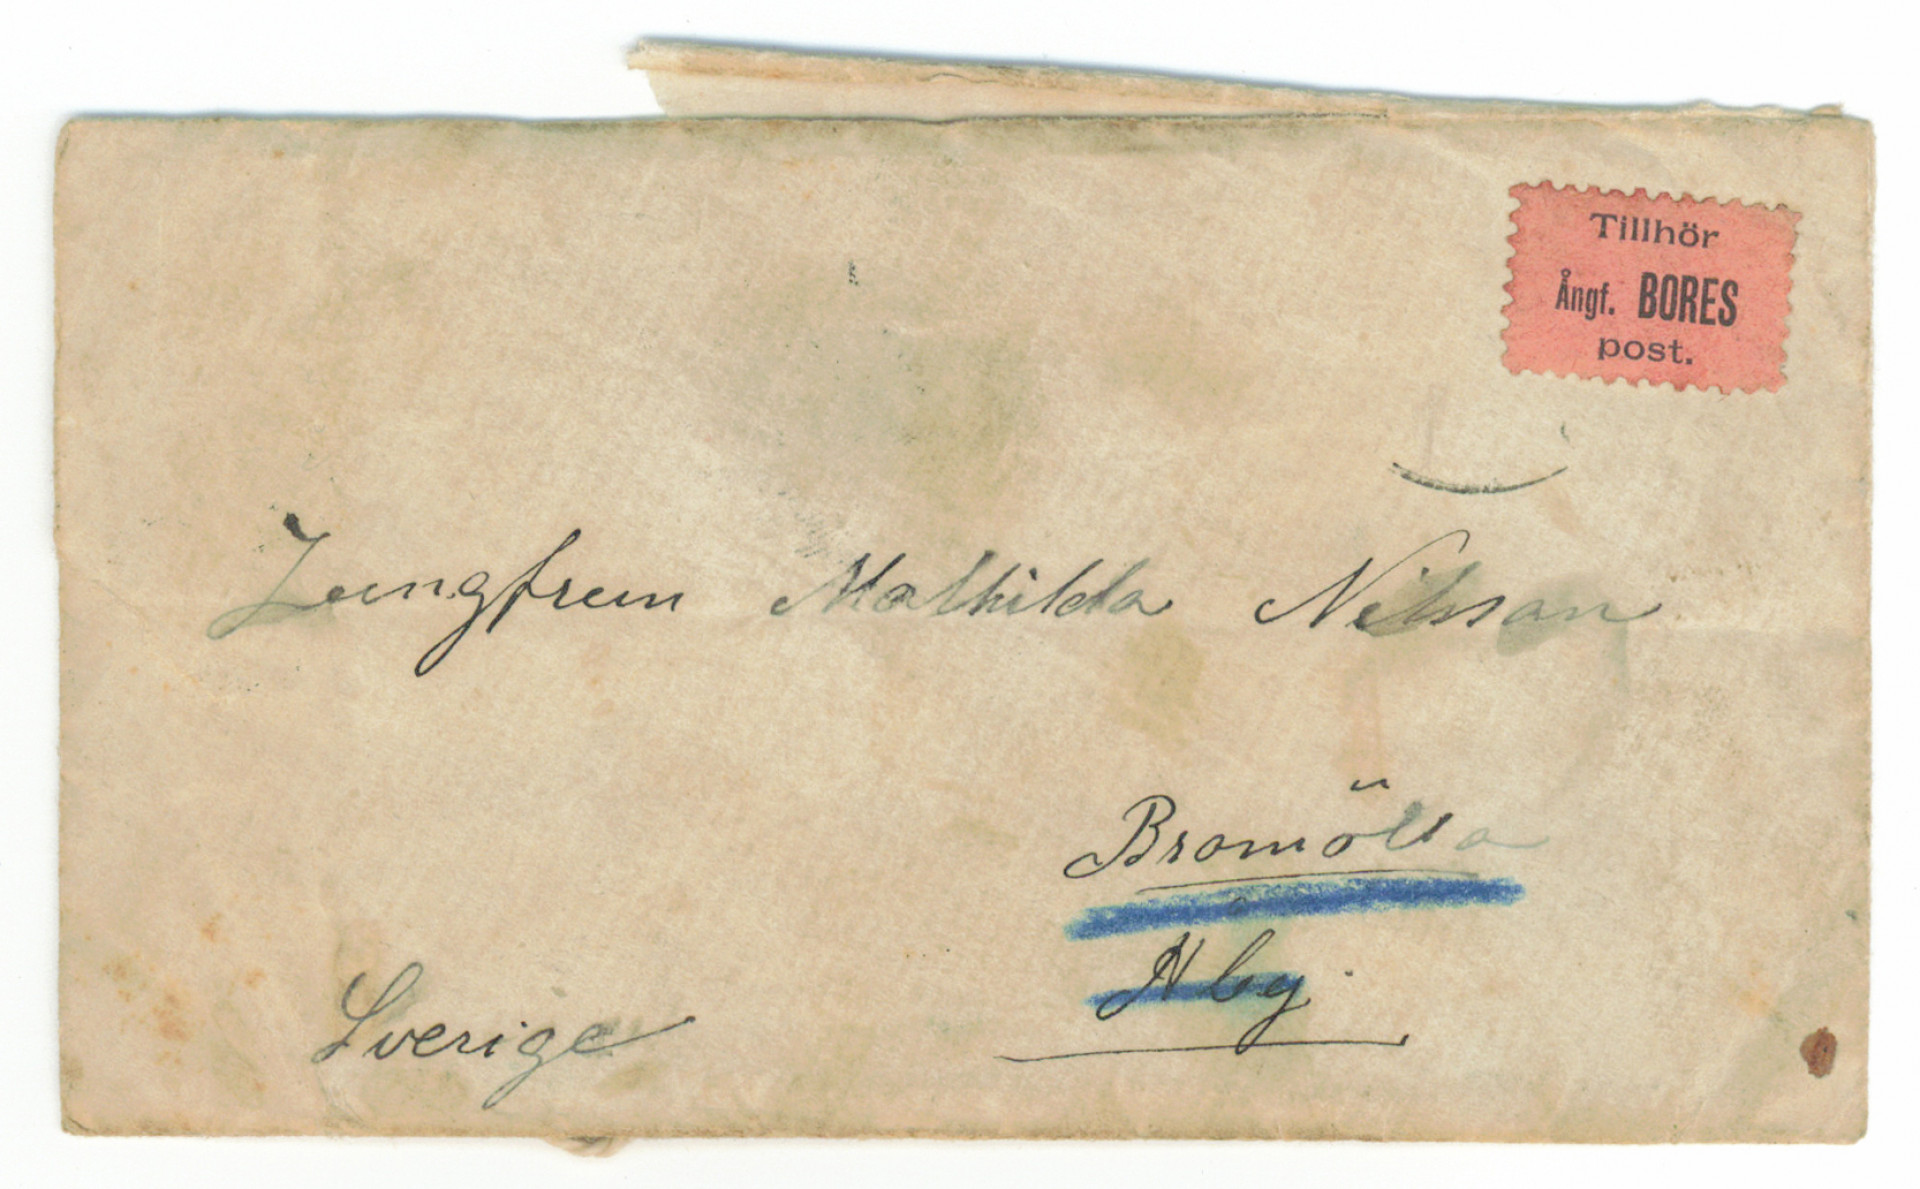 Tillhör
Ångf. BORES
post.
Jungfrun Mathilda Nilsson
Bromölla
Åby.
Sverige